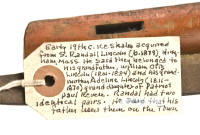 Early 19th C. ice skates acquired
from St. Randall Lincoln (b. 1879) Hing-
ham, Mass. He said they belonged to
his grandfather, William Otis
Lincoln (1801-1834) and his grand-
mother, Adeline Lincoln, (1816-
1870) granddaughter of Patriot
Paul Revere. Randall had two
identical pairs. He said that his
father used them on the Town